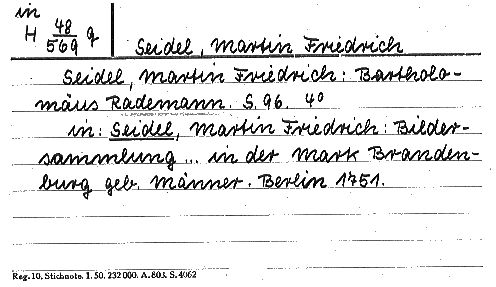 in
H 48/569 q
Seidel, Martin Friedrich
Seidel, Martin Friedrich: Bartholo-
mäus Rademann. S. 96. 4°
in: Seidel, Martin Friedrich: Bilder-
sammlung ... in der Mark Branden-
burg geb. Männer. Berlin 1751.
Reg. 10. Stichnote. 1. 50. 232 000. A. 803. S. 4062